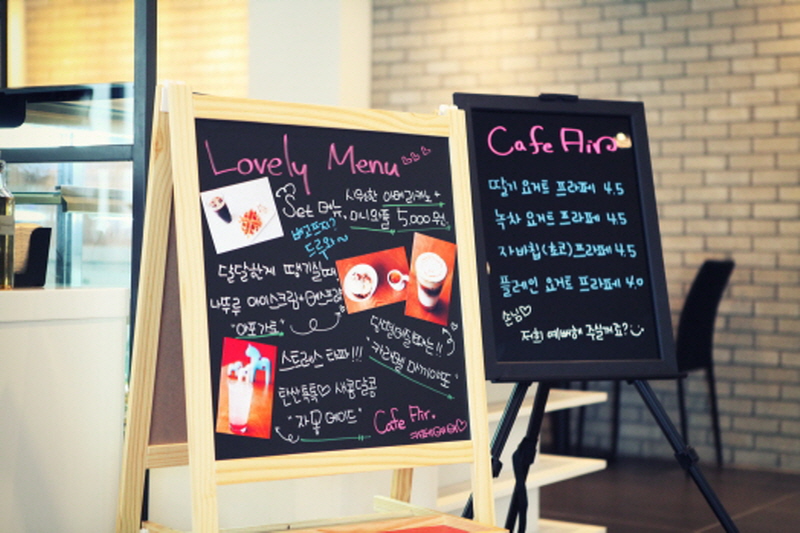 Lovely Menu
Set 메뉴, 시원한 아메리카노 +
미니와플 5,000원
배고프지?
드루와~
달달한게 땡기실때,
나뚜루 아이스크림+에스프레
"아포가토"
당 떨어질때는!!
"카라멜 마끼아또"
스트레스 타파!!!
탄산톡톡♡ 새콤달콤
"자몽에이드"
Cafe Air.
카페에어♡
Cafe Air
딸기 요거트 프라페 4.5
녹차 요거트 프라페 4.5
자바칩(초코)프라페 4.5
플레인 요거트 프라페 4.0
손님♡
저희 예뻐해 주실거죠?